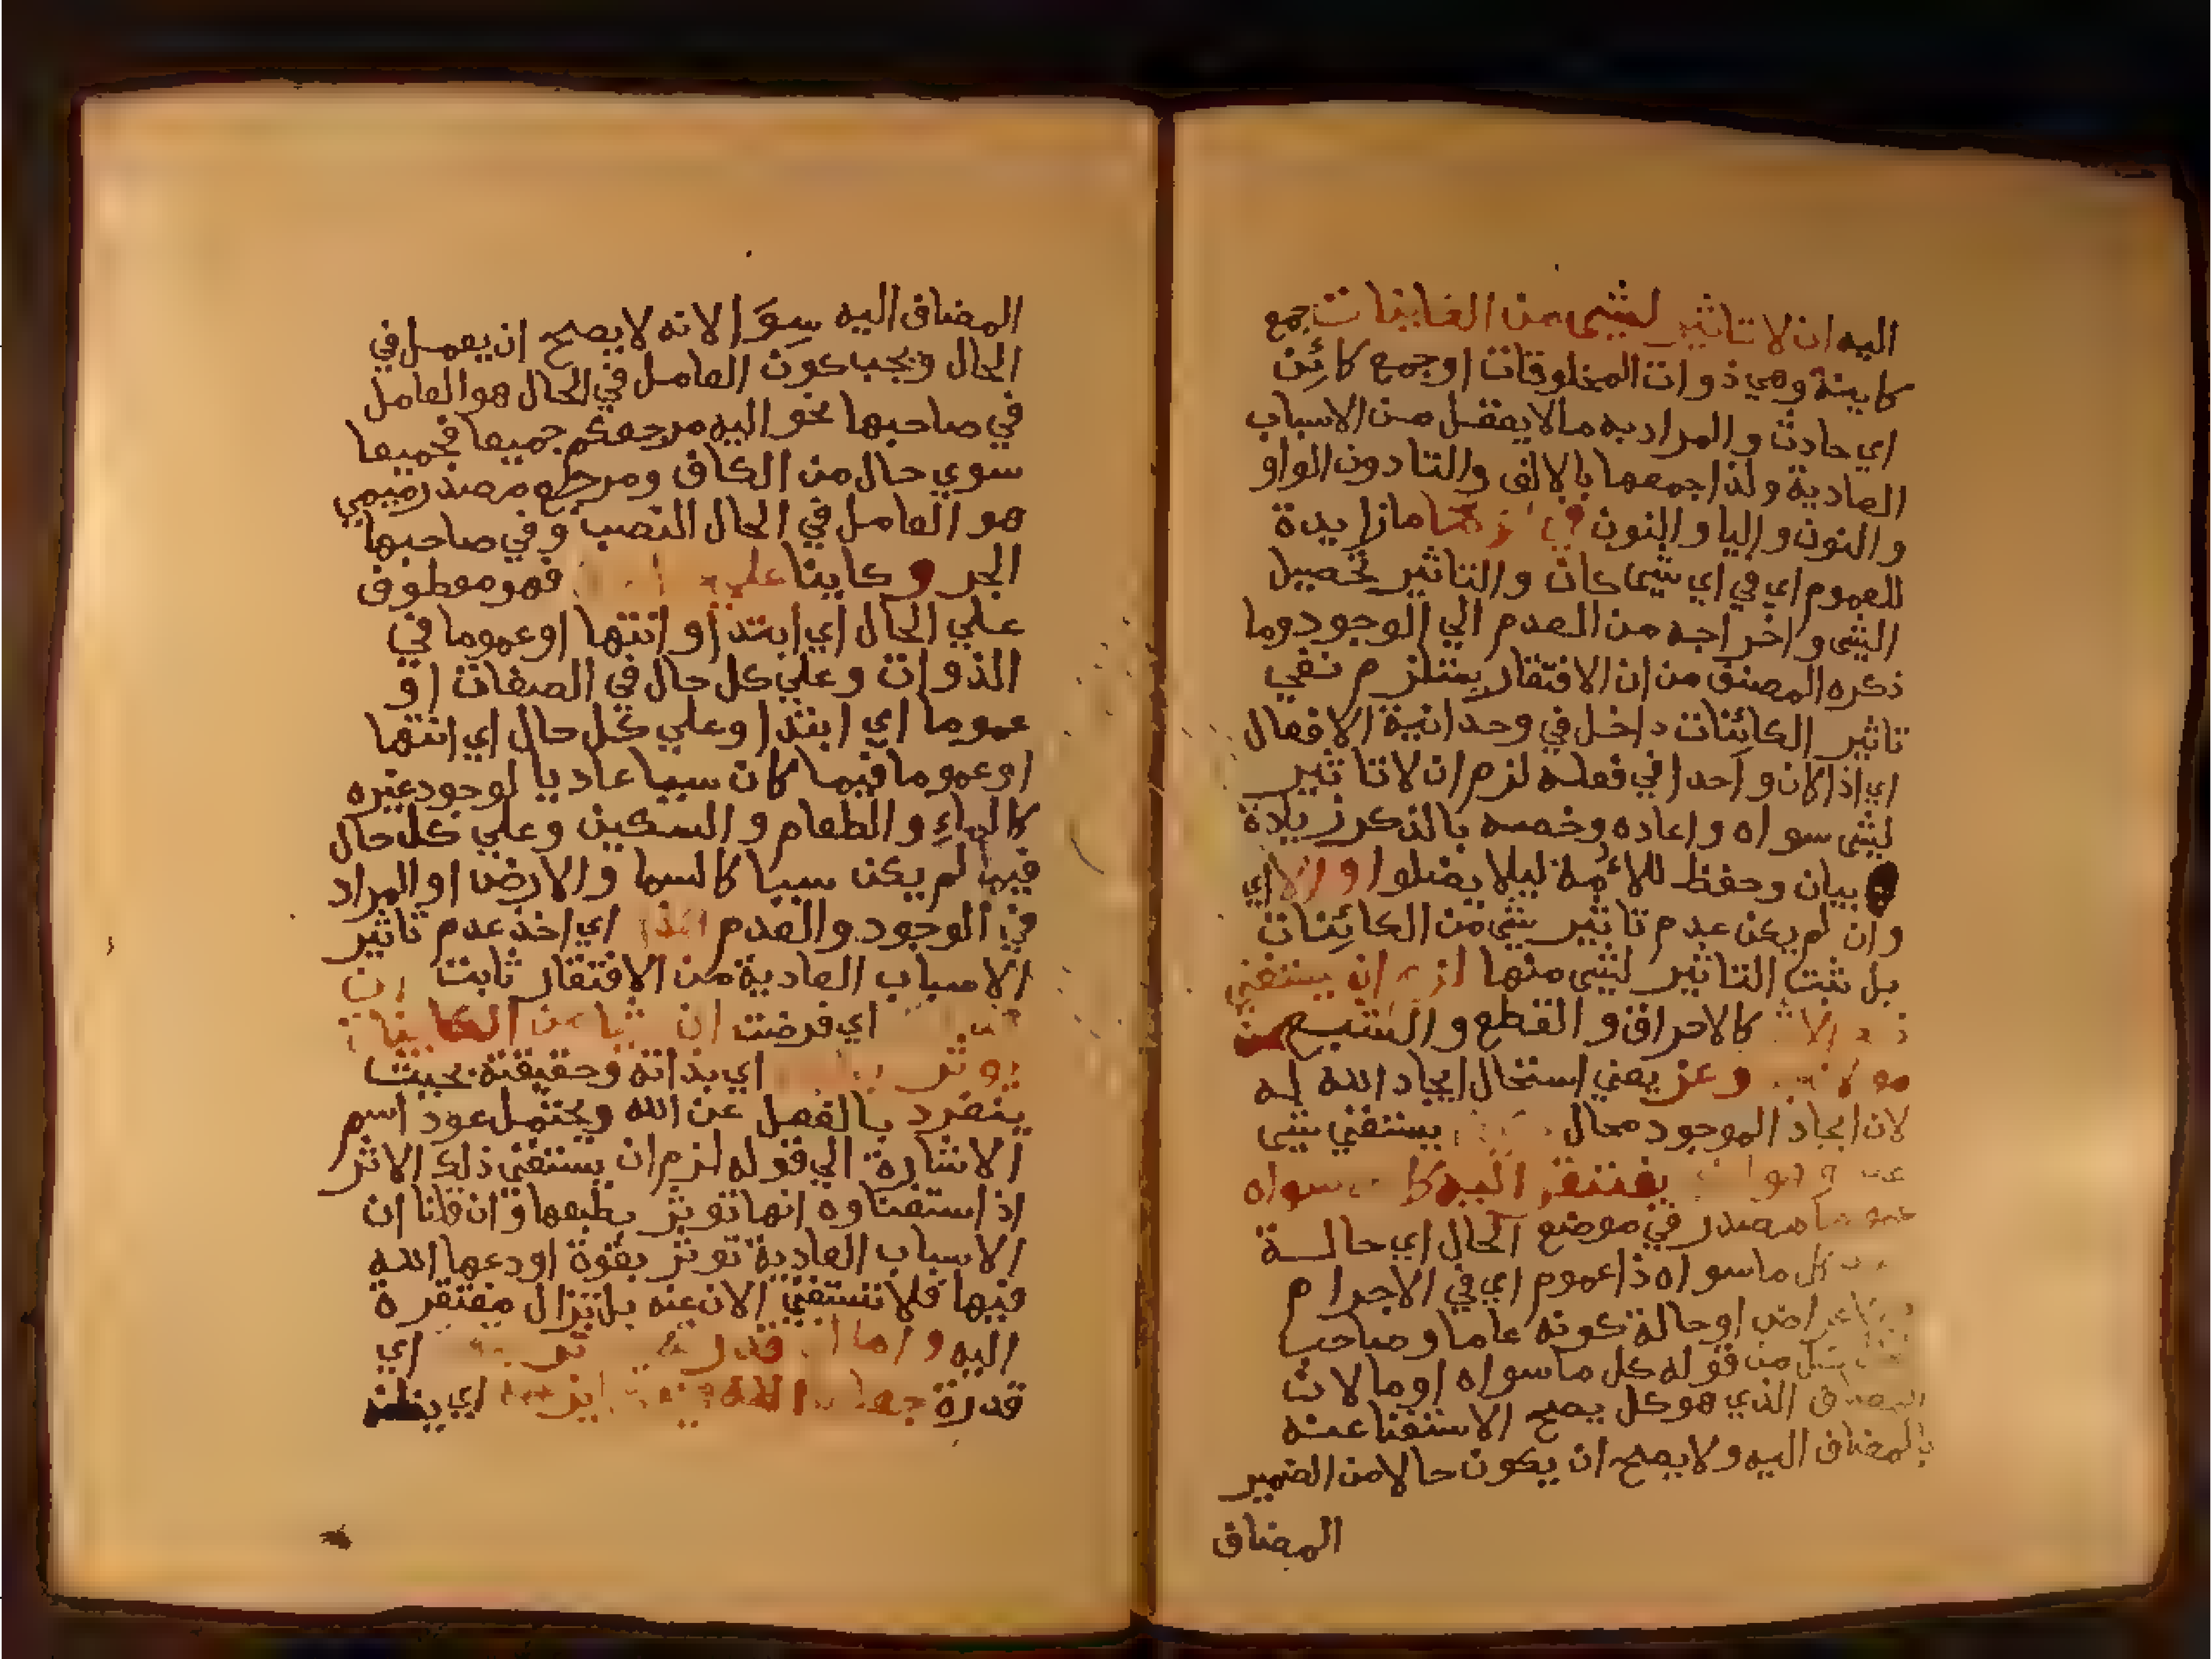 اليه ان لا تاثير لشىء من الكاينات جمع
كاينة وهي ذوات المخلوقات او جمع كائن
اي حادث والمراد به ما لا يعقل من الاسباب
العادية ولذا جمعها بالالف والتا دون الواو
والنون واليا والنون في اثر ما ما زايدة
للعموم اي في اي شىء كان والتاثير تحصيل
الشى واخراجه من العدم الي الوجود وما
ذكره المصنف من ان الافتقار يستلزم نفي
تاثير الكائنات داخل في وحدانية الافعال
اي اذا كان واحدا في فعله لزم ان لا تاثير
لشى سواه واعاده وخصه بالذكر زيادة
بيان وحفظ للائمة ليلا يضلوا والا اي
وان لم يكن عدم تاثير شى من الكائنات
بل ثبت التاثير لشى منها لزم ان يستغني
ذلك الاثر كالاحراق والقطع والشبع عن
مولانا وعز يعني استحال ايجاد الله له
لان ايجاد الموجود محال يستغني شى
يفتقر اليه كل سواه
عموما مصدر في موضع الحال اي حالة
كل ما سواه ذا عموم اي في الاجرام
والاعراض او حالة كونه عاما وصاحب
من قوله كل ما سواه او ما لان
المضاف الذي هو كل يصح الاستغنا عنه
بالمضاف اليه ولا يصح ان يكون حالا من الضمير
المضاف
المضاف اليه سوَا لانه لا يصح ان يعمل في
الحال ويجب كون العامل في الحال هو العامل
في صاحبها نحو اليه مرجعكم جميعا فجميعا
سوي حال من الكاف ومرجع مصدر ميمي
هو العامل في الحال النصب وفي صاحبها
الجر وكاينا علي فهو معطوف
علي الحال اي ابتدا وانتها او عموما في
الذوات وعلي كل حال في الصفات او
عموما اي ابتدا وعلي كل حال اي انتها
او عموما فيما كان سببا عاديا لوجود غيره
كالماءِ والطعام والسكين وعلي كل حال
فيما لم يكن سببا كالسما والارض او المراد
في الوجود والعدم هذا اي اخذ عدم تاثير
الاسباب العادية من الافتقار ثابت ان
اي فرضت ان شيا من الكاينات
يوثر اي بذاته وحقيقته بحيث
ينفرد بالفعل عن الله ويحتمل عود اسم
الاشارة الي قوله لزم ان يستغني ذلك الاثر
اذ استغناوه انها توثر بطبعها وان قلنا ان
الاسباب العادية توثر بقوة اودعها الله
فيها فلا تستغني الان عنه بل تزال مفتقرة
اليه واما قدر اي
قدرة جعلها الله اي يظن